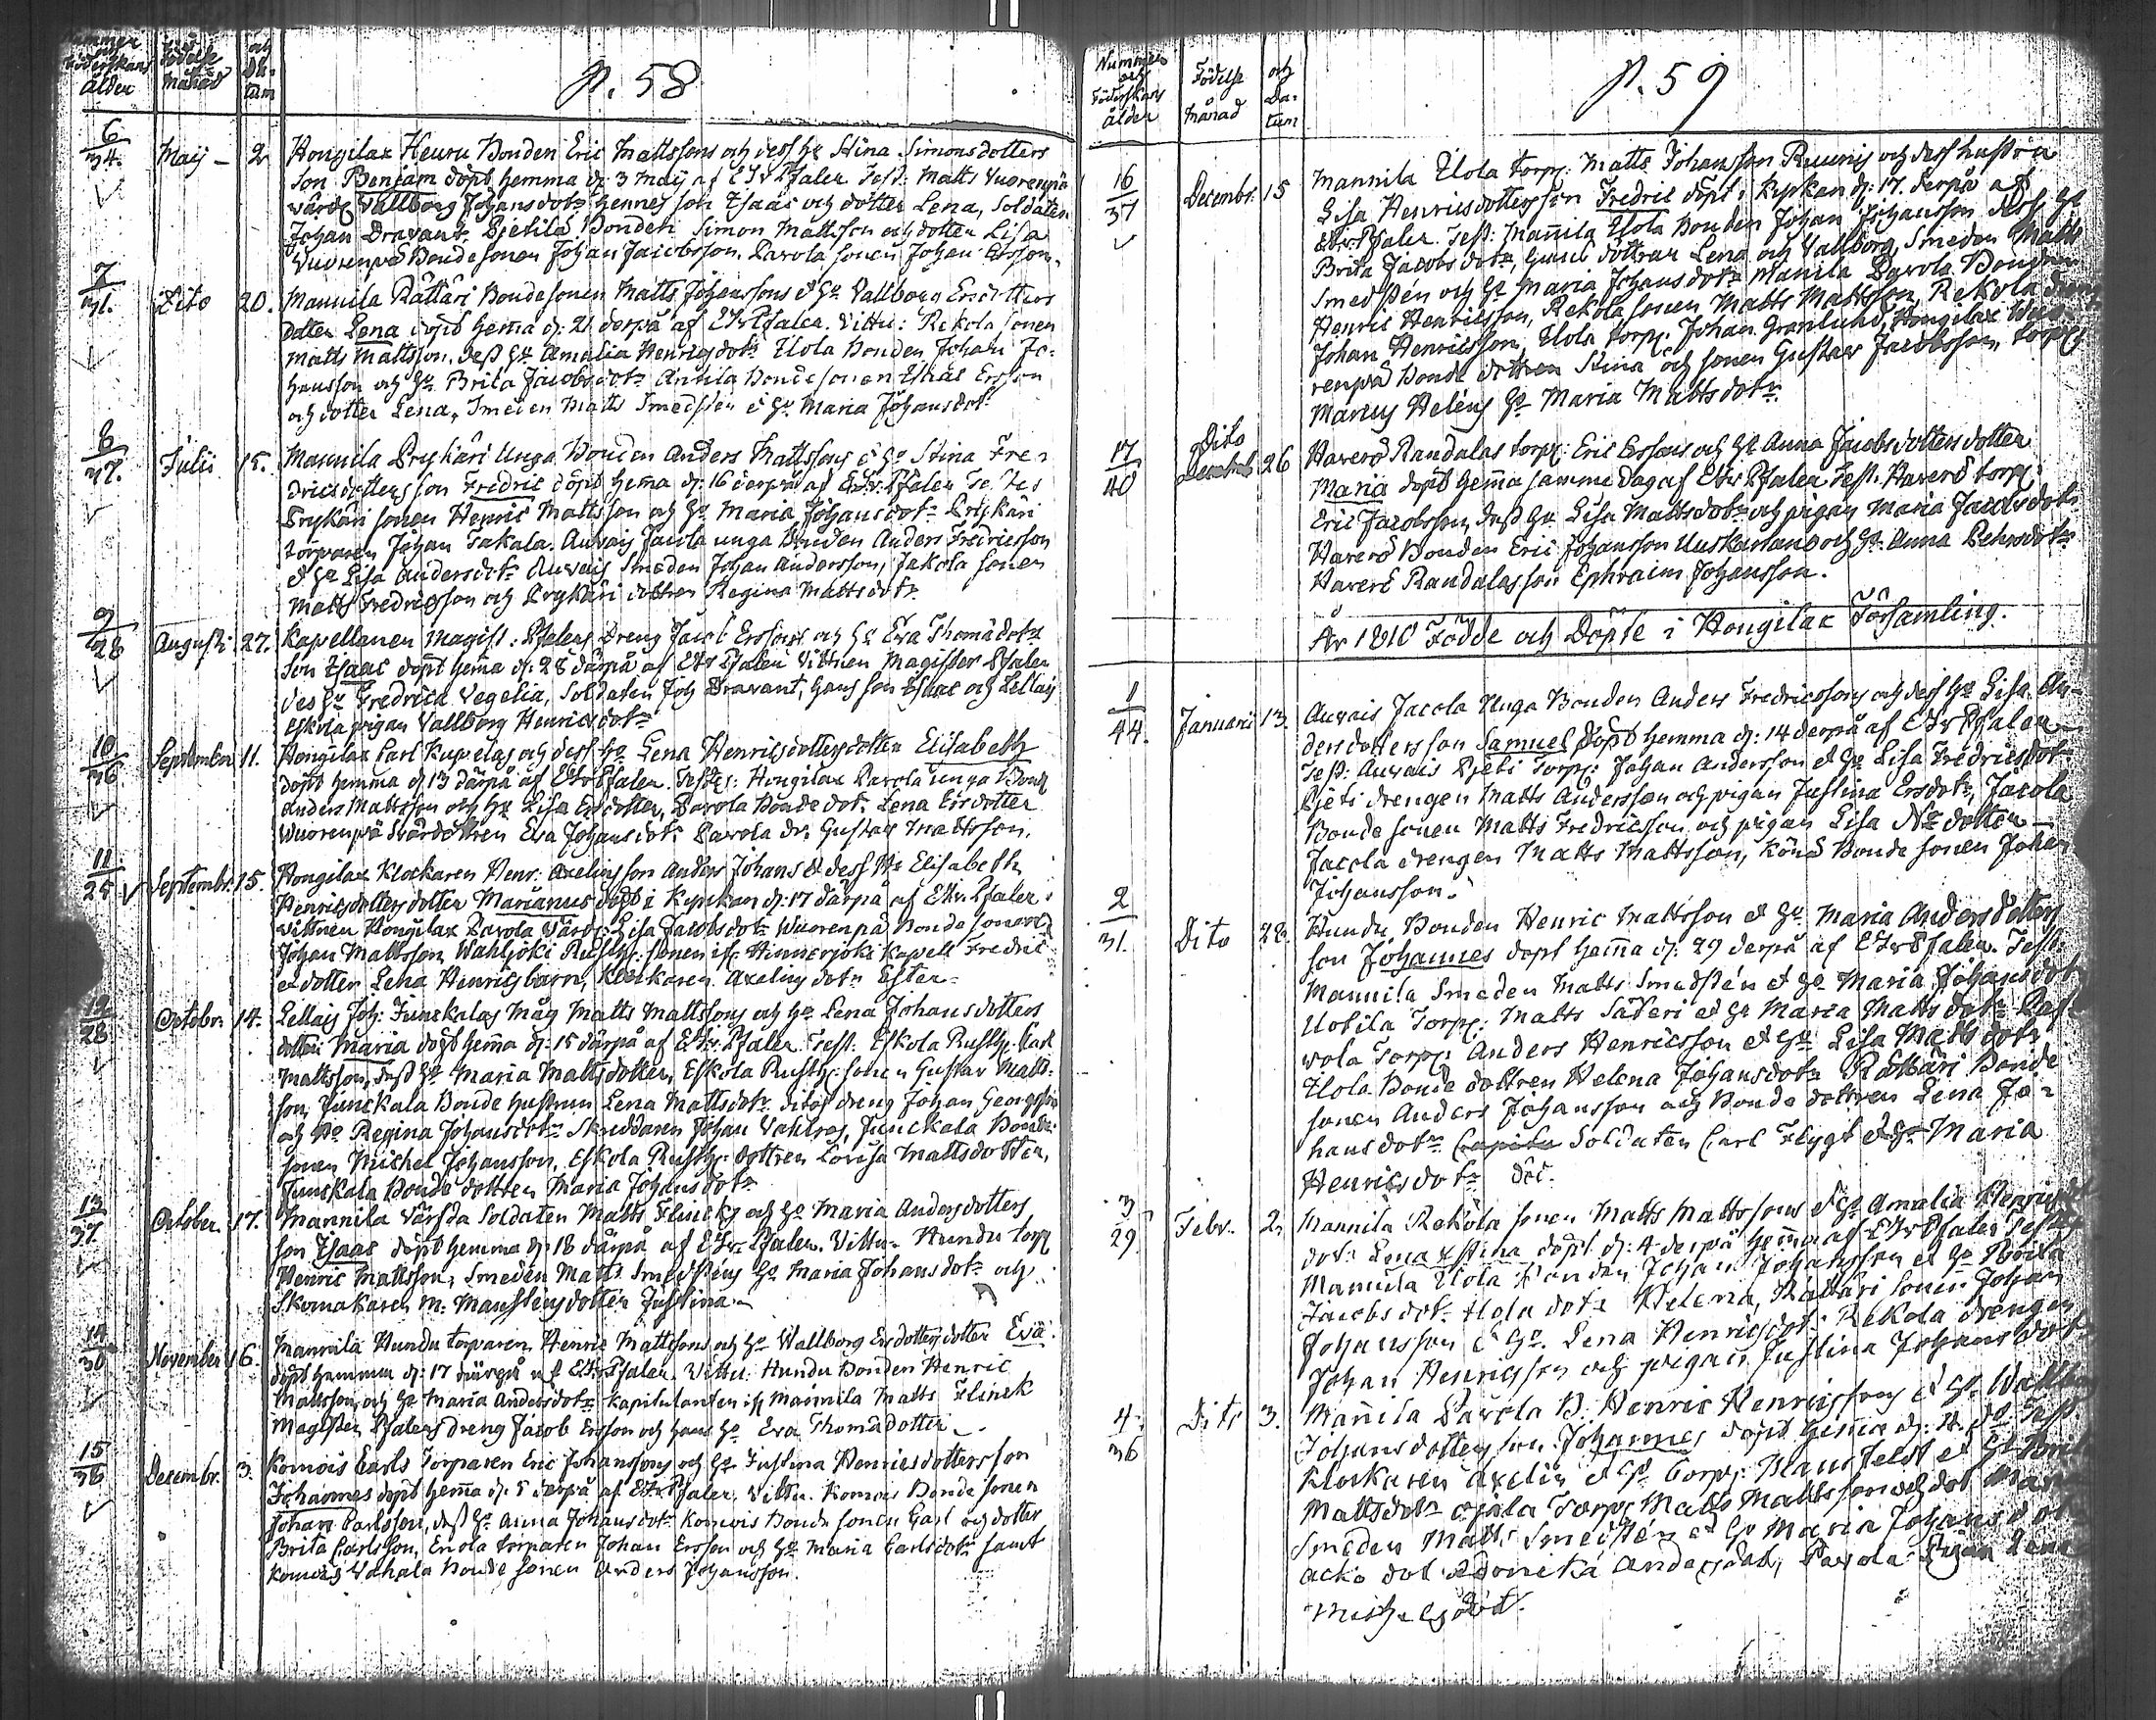 Nummer och Föderskans ålder
Födelse månad
och Datum
p. 58
6/34. Maij 2 Hongilax Heuru Bonden Eric Mattssons och dess Ho Stina Simonsdotters
Son Benjam döpt hemma d: 3 Maij af EHr Pfaler Test: Matts Vuorenpä
Vallborg Johansdotr hennes son Isaac och dotter Lena, Soldaten
Johan Dravant. Pjetilä Bonden Simon Mattsson och dotter Lisa
Vuorenpä Bondesonen Johan Jacobsson. Parola sonen Johan Ersson.
7/31. Dito 20. Mannila Rättäri Bondesonen Matts Johanssons et Ho Vallborg Ersdotters
dotter Lena döpt hem̄a d: 21 derpå af EHr Pfaler. Vittn: Rekola sonen
Matts Mattsson, dess Ho Amalia Henricsdotr Ilola Bonden Johan Jo-
hansson och Ho Brita Jacobsdotr Anttila Bondesonen Isaac Ersson
och dotter Lena, Smeden Matts Smedsten et Ho Maria Johansdotr
8/37. Julii 15. Mannila Prykäri Unga Bonden Anders Mattssons et Ho Stina Fre-
dricsdotters son Fredric döpt hem̄a d: 16 derpå af EHr Pfaler Testes
Prykäri sonen Henric Mattsson och Ho Maria Johansdotr Prykäri
torparen Johan Takala. Auvais Jacola unga Bonden Anders Fredricsson
et Ho Lisa Andersdotr Auvais Smeden Johan Andersson, Jakola sonen
Matts Fredricsson och Prykäri dottren Regina Mattsdotr
9/28 Augusti 27. Kapellanen Magist: Pfalers Dreng Jacob Erssons och Ho Eva Thomädotr
Son Isaac döpt hem̄a d: 28 därpå af EHr Pfaler Vittnen Magister Pfaler
des Ho Fredrica Vegelia, Soldaten Joh Dravant, hans son Isaac och Lellais
Eskola pigan Vallborg Henricsdotr
10/36 September 11. Hongilax Carl Kupelas och dess Ho Lena Henricsdotters dotter Elisabeth
döpt hemma d 13 därpå af EHr Pfaler. Testes: Hongilax Parola Unga Bond
Anders Mattsson och Ho Lisa Ersdotter, Parola Bondedotr Lena Ersdotter
Wuorenpä Eva Johansdotr Parola dr: Gustav Mattsson.
11/25 Septembr. 15. Hongilax Klockaren Henr: Axelins son Anders Johans et dess Ho Elisabeth
Henricsdotters dotter Marianus döpt i Kyrckan d: 17 därpå af EHr Pfaler.
Vittnen Hongilax Parola Värd: Lisa Jacobsdotr Wuorenpä Bonde sonen
Johan Mattsson, Wahljoki Rusth: sonen if: Hinnerjoki Kapell Fredric
et dotter Lena Henrics barn, Klockaren Axelins dotr Ester.
12/28 Octobr: 14. Lellais Joh: Junckalas Måg Matts Mattssons och Ho Lena Johansdotters
dotter Maria döpt hem̄a d: 15 därpå af EHr Pfaler Test: Eskola Rusth: Carl
Mattsson, dess Ho Maria Mattsdotter, Eskola Rusth: sonen Gustav Matts-
son, Junckala Bonde hustrun Lena Mattsdotr ditos dreng Johan Georgsson
och Ho Regina Johansdotr Skreddaren Johan Vahlros, Junckala Bonde
sonen Michel Johansson, Eskola Rusth: dottren Lovisa Mattsdotter,
Junckala Bonde dottren Maria Johansdotr
13/37 October 17. Mannila Soldaten Matts Flincks och Ho Maria Andersdotters
son Isaac döpt hemma d: 18 därpå af EHr Pfaler. Vittn: Hundu torp:
Henric Mattsson, Smeden Matts Smedstens Ho Maria Johansdotr och
Skomakaren M: dotter Justina
14/30 November 16. Mannila Hundu torparen Henric Mattssons och Ho Wallborg Ersdotters dotter Eva
döpt hemma d: 17 därpå af EHr Pfaler. Vittn: Hundu Bonden Henric
Mattsson, och Ho Maria Andersdotr Kapitulanten if Mannila Matts Flinck
Magister Pfalers dreng Jacob Ersson och hans Ho Eva Thomädotter.
15/38 Decembr. 3. Komois Carls Torparen Eric Johanssons och Ho Justina Henricsdotters son
Johannes döpt hem̄a d: 5 derpå af EHr Pfaler. Vittn. Komois Bonde sonen
Johan Carlsson, dess Ho Anna Johansdotr Komois Bonde sonen Carl och dotter
Brita Carlsson, Eriola torparen Johan Ersson och Ho Maria Carlsdotr samt
Komois Vahala Bonde sonen Anders Johansson.
Nummer och Föderskans ålder
Födelse månad
och Datum
p. 59
16/37 Decembr. 15 Mannila Ilola torp: Matts Johansson Ruunis och dess hustru
Lisa Henricsdotters son Fredric döpt i Kyrkan d: 17. derpå af
EHr Pfaler. Test: Man̄ila Ilola Bonden Johan Johansson dess Ho
Brita Jacobsdotr, döttrar Lena och Vallborg, Smeden Matts
Smedstén och Ho Maria Johansdotr Manila Parola Bonden
Henric Henricsson, Rekola sonen Matts Mattsson, Rekola dreng
Johan Henricsson, Ilola torp: Johan Granlund, Hongilax Wuo-
renpä Bonde dottren Stina och sonen Gustav Jacobsson, torp:
Marcus Heléns Ho Maria Mattsdotr
17/40 Dito Decembr 26 Haverö Randalas torp: Eric Erssons och Ho Anna Jacobsdotters dotter
Maria döpt hem̄a samma dag af EHr Pfaler Test. Haverö torp:
Eric Jacobsson, dess Ho Lisa Mattsdotr och pigan Maria Jacobsdotr
Haverö Bonden Eric Johansson Uuskartano och Ho Anna Pehrsdotr
Haverö Randalas son Ephraim Johansson.
År 1810 Födde och Döpte i Hongilax Församling.
1/44. Januarii 13. Auvais Jacola Unga Bonden Anders Fredricssons och dess Ho Lisa An-
dersdotters son Samuel döpt hemma d: 14 derpå af EHr Pfaler
Test: Auvais Pjeti Torp: Johan Andersson et Ho Lisa Fredricsdotr
Pjeti drengen Matts Andersson och pigan Justina Ersdotr, Jacola
Bonde sonen Matts Fredricsson och pigan Lisa Ns dotter
Jacola drengen Matts Mattsson, Könö Bonde sonen Johan
Johansson.
2/31. Dito 28. Hundu Bonden Henric Mattsson et Ho Maria Andersdotters
son Johannes döpt hem̄a d: 29 derpå af EHr Pfaler. Test:
Mannila Smeden Matts Smedstén et Ho Maria Johansdotr
Uotila Torp: Matts Säderi et Ho Maria Mattsdotr
wola Torp: Anders Henricsson et Ho Lisa Mattsdotr
Ilola Bonde dottren Helena Johansdotr Rättäri Bonde
sonen Anders Johansson och Bonde dottren Lena Jo-
hansdotr Soldaten Carl Flygt et Ho Maria
Henricsdotr
3/29. Febr. 2. Mannila Rekola sonen Matts Mattssons et Ho Amalia Henrics
dotr Lena Stina döpt d: 4 derpå hem̄a af EHr Pfaler Testes
Mannila Ilola Bonden Johan Johansson et Ho Brita
Jacobsdotr Ilola dotr Helena, Rättäri sonen Johan
Johansson et Ho Lena Henricsdotr Rekola drengen
Johan Henricsson och pigan Justina Johansdotr
4/36 Dito 3. Man̄ila Parola B: Henric Henricssons et Ho Wallb
Johansdotters son Johannes döpt hem̄a d: 4 do Test.
Klockaren Axelin et Ho Corp: Mansfeldt et Ho Brit
Mattsdotr Ojala Torp: Matts Mattsson och dot Mar
Smeden Matts Smedstén et Ho Maria Johansdotr
dot Andersdot, Parola Pigan Lena
Michelsdot.